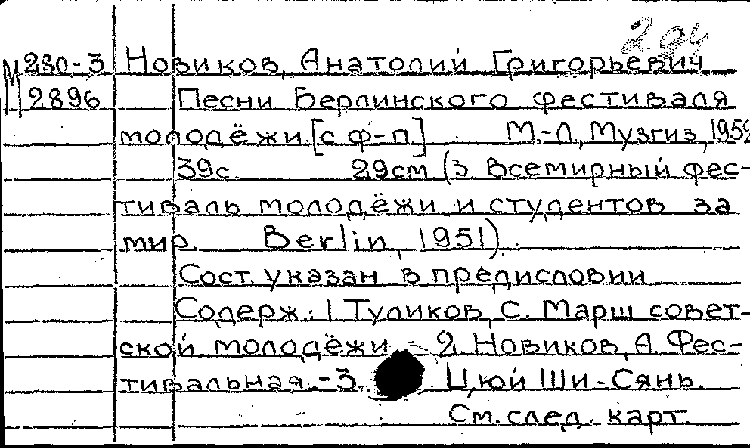 2 94
М 280-3 Новиков, Анатолий Григорьевич
2896 Песни Берлинского фестиваля
молодёжи. [с ф-п] М.-Л, Музгиз, 1952
39с 29см (3 Всемирный фес-
тиваль молодёжи и студентов за
мир. Berlin, 1951).
Сост. указан в предисловии
Содерж.: 1 Туликов, С. Марш совет-
ской молодёжи - 2. Новиков, А. Фес-
тивальная. - 3. Цюй Ши-Сянь.
См. след. карт.